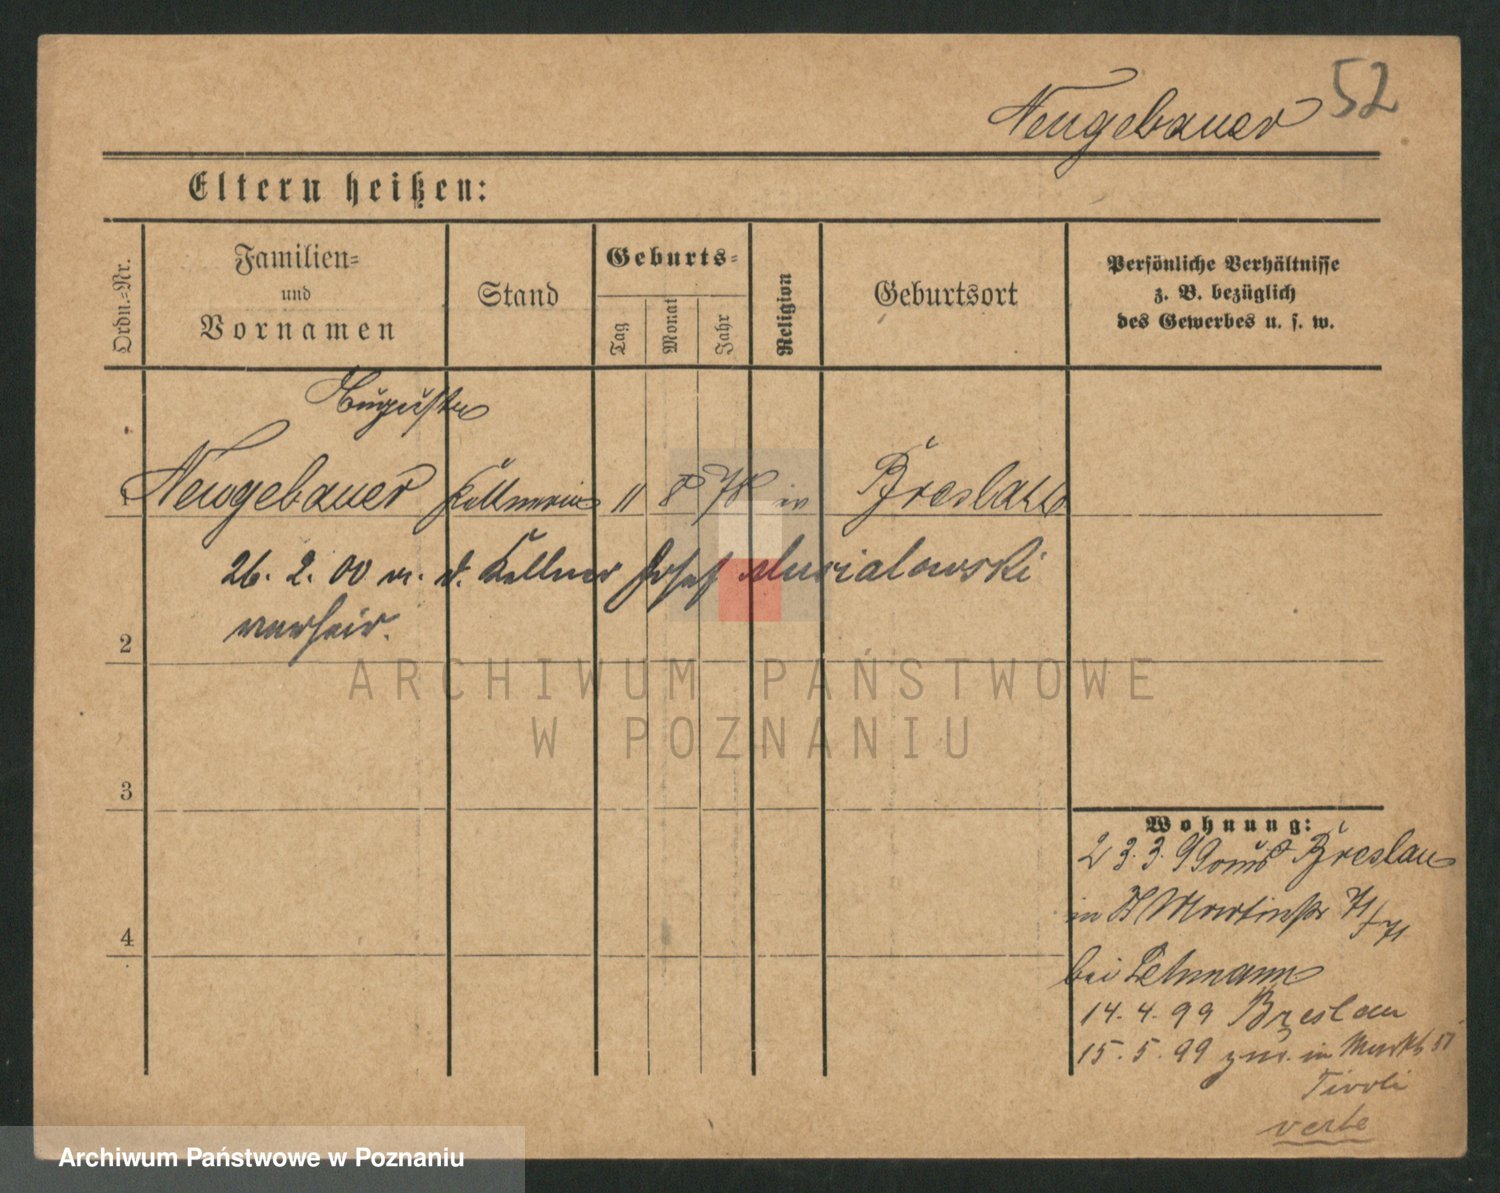 52
Neugebauer
Eltern heißen:
Ordn.-Nr.
Familien-
und
Vornamen
Stand
Geburts-
Tag
Monat
Jahr
Religion
Geburtsort
Persönliche Verhältnisse
z. B. bezüglich
des Gewerbes u. s. w.
Auguste
1 Neugebauer Kellnerin 11 8 78 in Breslau
26. 2. 00 m. d. Kellner Josef
verheir.
2
3
4
Wohnung:
23. 3. 99 aus Breslau
in St Martinstr 71
bei Lehmann
14. 4. 99 Breslau
15. 5. 99 zur. in Markt 51
Tivoli
verte
ARCHIWUM PAŃSTWOWE
W POZNANIU
Archiwum Państwowe w Poznaniu